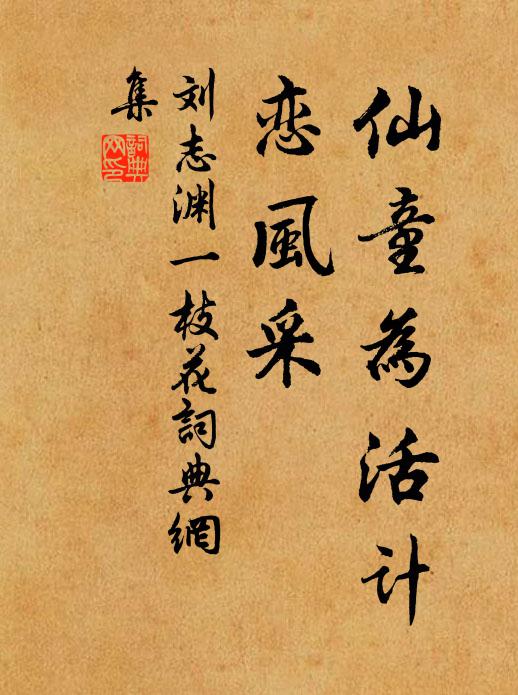 仙童為活计
恋風采
刘志渊一枝花詞典網
集
詞典
网印